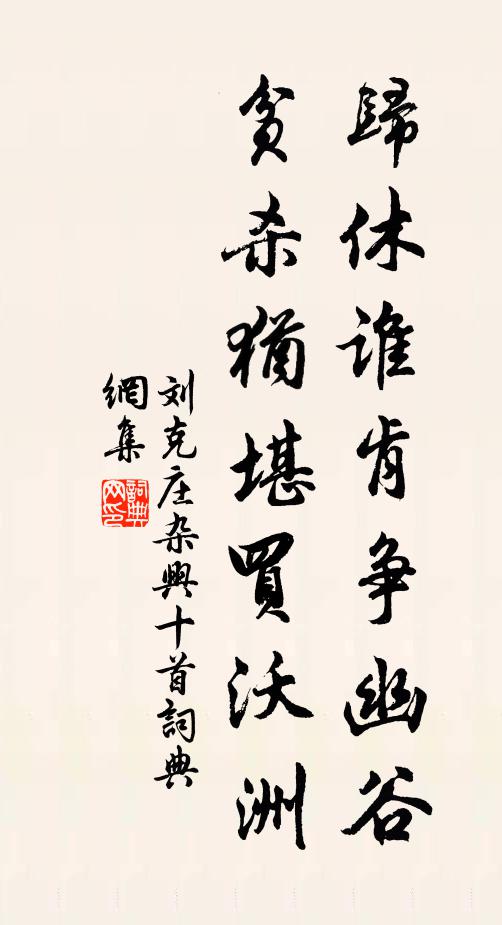 歸休谁肯争幽谷
贫杀猶堪買沃洲
刘克庄杂興十首詞典
網集
詞典
网印